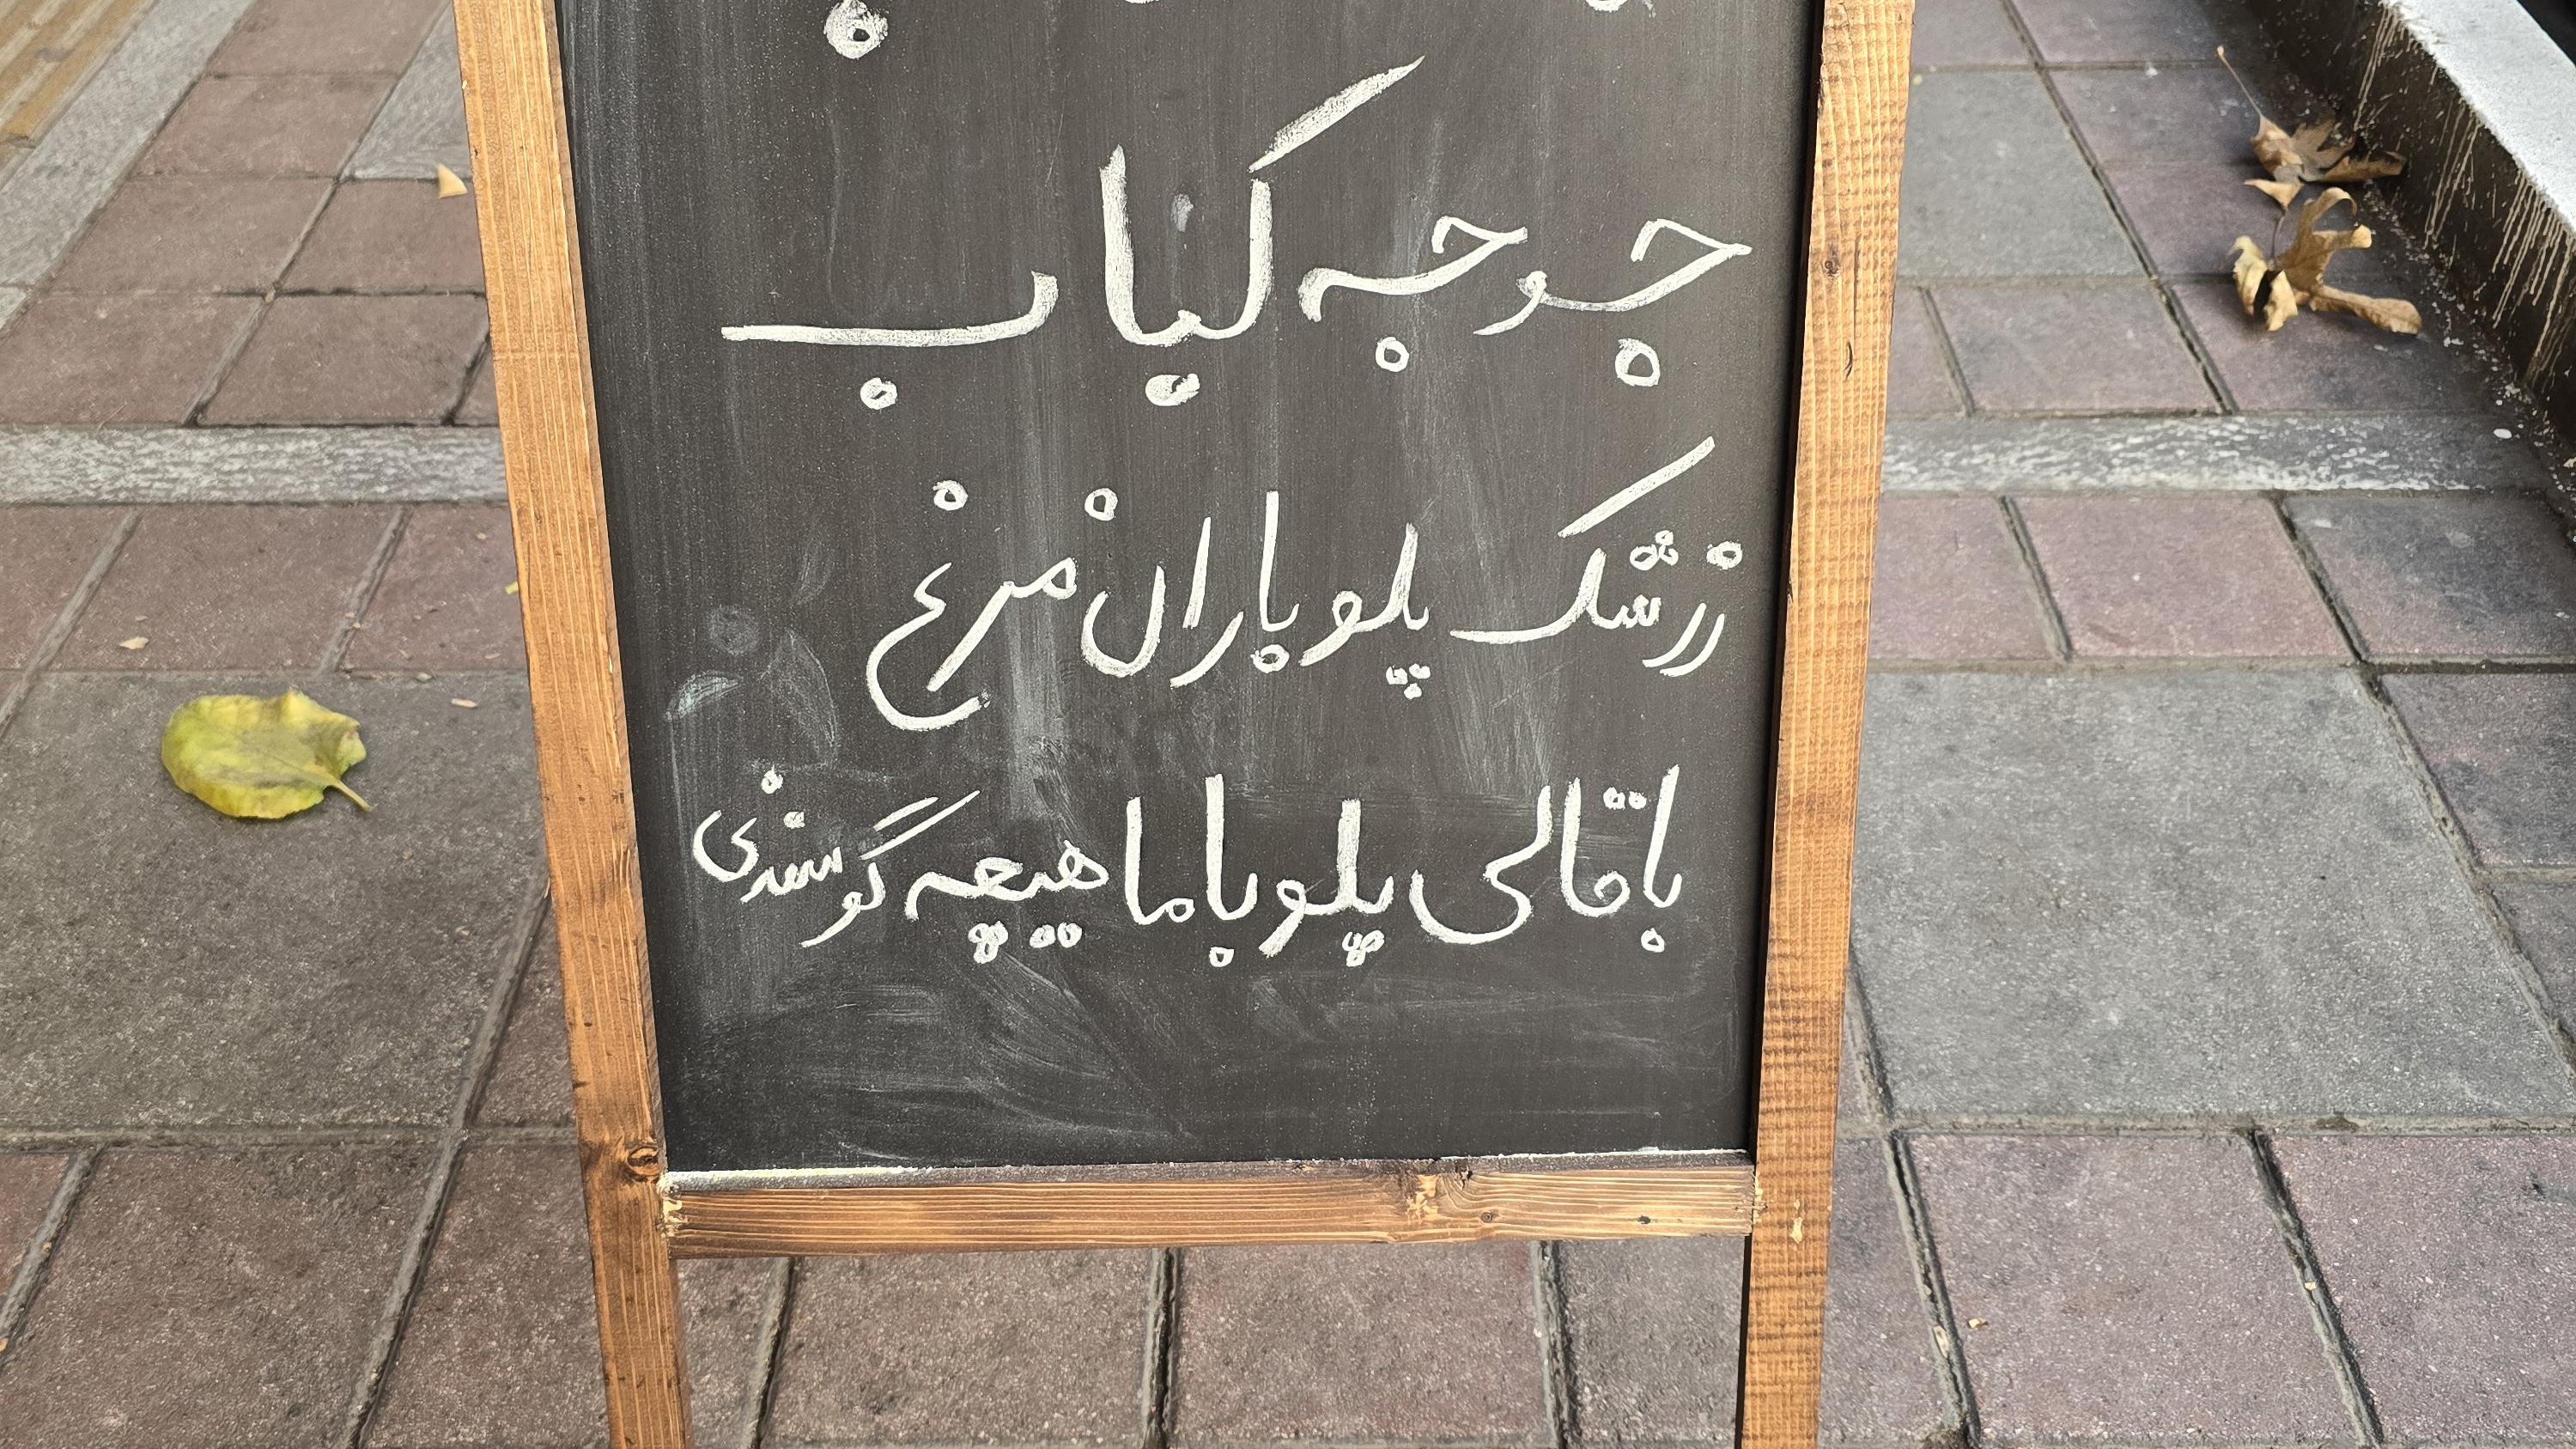 جوجه کباب
زرشک پلو با ران مرغ
باقالی پلو با ماهیچه گوسفندی